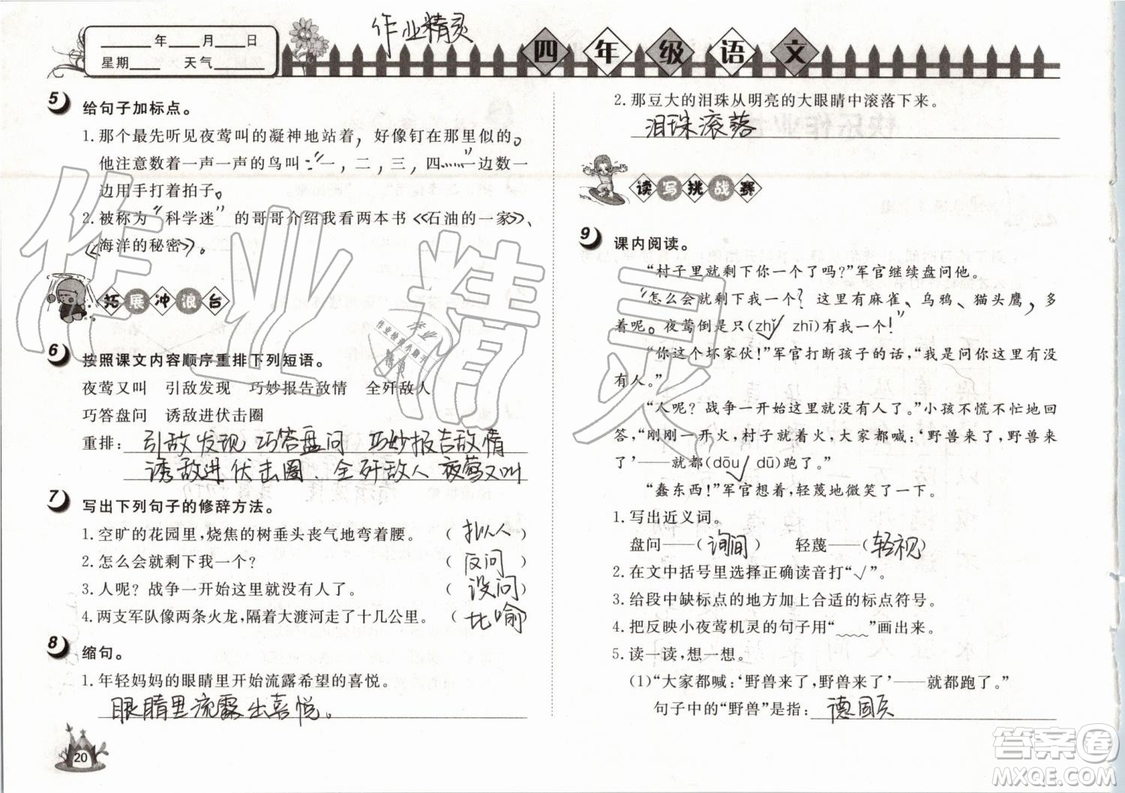 ____年____月____日
星期____ 天气____
作业精灵
四年级语文
5 给句子加标点。
1.那个最先听见夜莺叫的凝神地站着，好像钉在那里似的。
他注意数着一声一声的鸟叫：“一，二，三，四……”一边数
一边用手打着拍子。
2.被称为“科学迷”的哥哥介绍我看两本书《石油的一家》
《海洋的秘密》。
拓展冲浪台
6 按照课文内容顺序重排下列短语。
夜莺又叫 引敌发现 巧妙报告敌情 全歼敌人
巧答盘问 诱敌进伏击圈
重排：引敌发现 巧答盘问 巧妙报告敌情
诱敌进伏击圈 全歼敌人 夜莺又叫
7 写出下列句子的修辞方法。
1.空旷的花园里，烧焦的树垂头丧气地弯着腰。（拟人）
2.怎么会就剩下我一个？（反问）
3.人呢？战争一开始这里就没有人了。（设问）
4.两支军队像两条火龙，隔着大渡河走了十几公里。（比喻）
8 缩句。
1.年轻妈妈的眼睛里开始流露希望的喜悦。
眼睛里流露出喜悦。
20
2.那豆大的泪珠从明亮的大眼睛中滚落下来。
泪珠滚落
读写挑战赛
9 课内阅读。
“村子里就剩下你一个了吗？”军官继续盘问他。
“怎么会就剩下我一个？这里有麻雀、乌鸦、猫头鹰，多
着呢。夜莺倒是只（zhǐ√ zhī）有我一个！”
“你这个坏家伙！”军官打断孩子的话，“我是问这里有没
有人。”
“人呢？战争一开始这里就没有人了。”小孩不慌不忙地回
答，“刚刚一开火，村子就着火，大家都喊：‘野兽来了，野兽来了
’——就都（dōu√ dū）跑了。”
“蠢东西！”军官想着，轻蔑地微笑了一下。
1.写出近义词。
盘问——（询问） 轻蔑——（轻视）
2.在文中括号里选择正确读音打“√”。
3.给段中缺标点的地方加上合适的标点符号。
4.把反映小夜莺机灵的句子用“﹏﹏”画出来。
5.读一读，想一想。
(1)“大家都喊：‘野兽来了，野兽来了！’——就都跑了。”
句子中的“野兽”是指：德国兵
作业精灵
答案卷
MXQE.COM